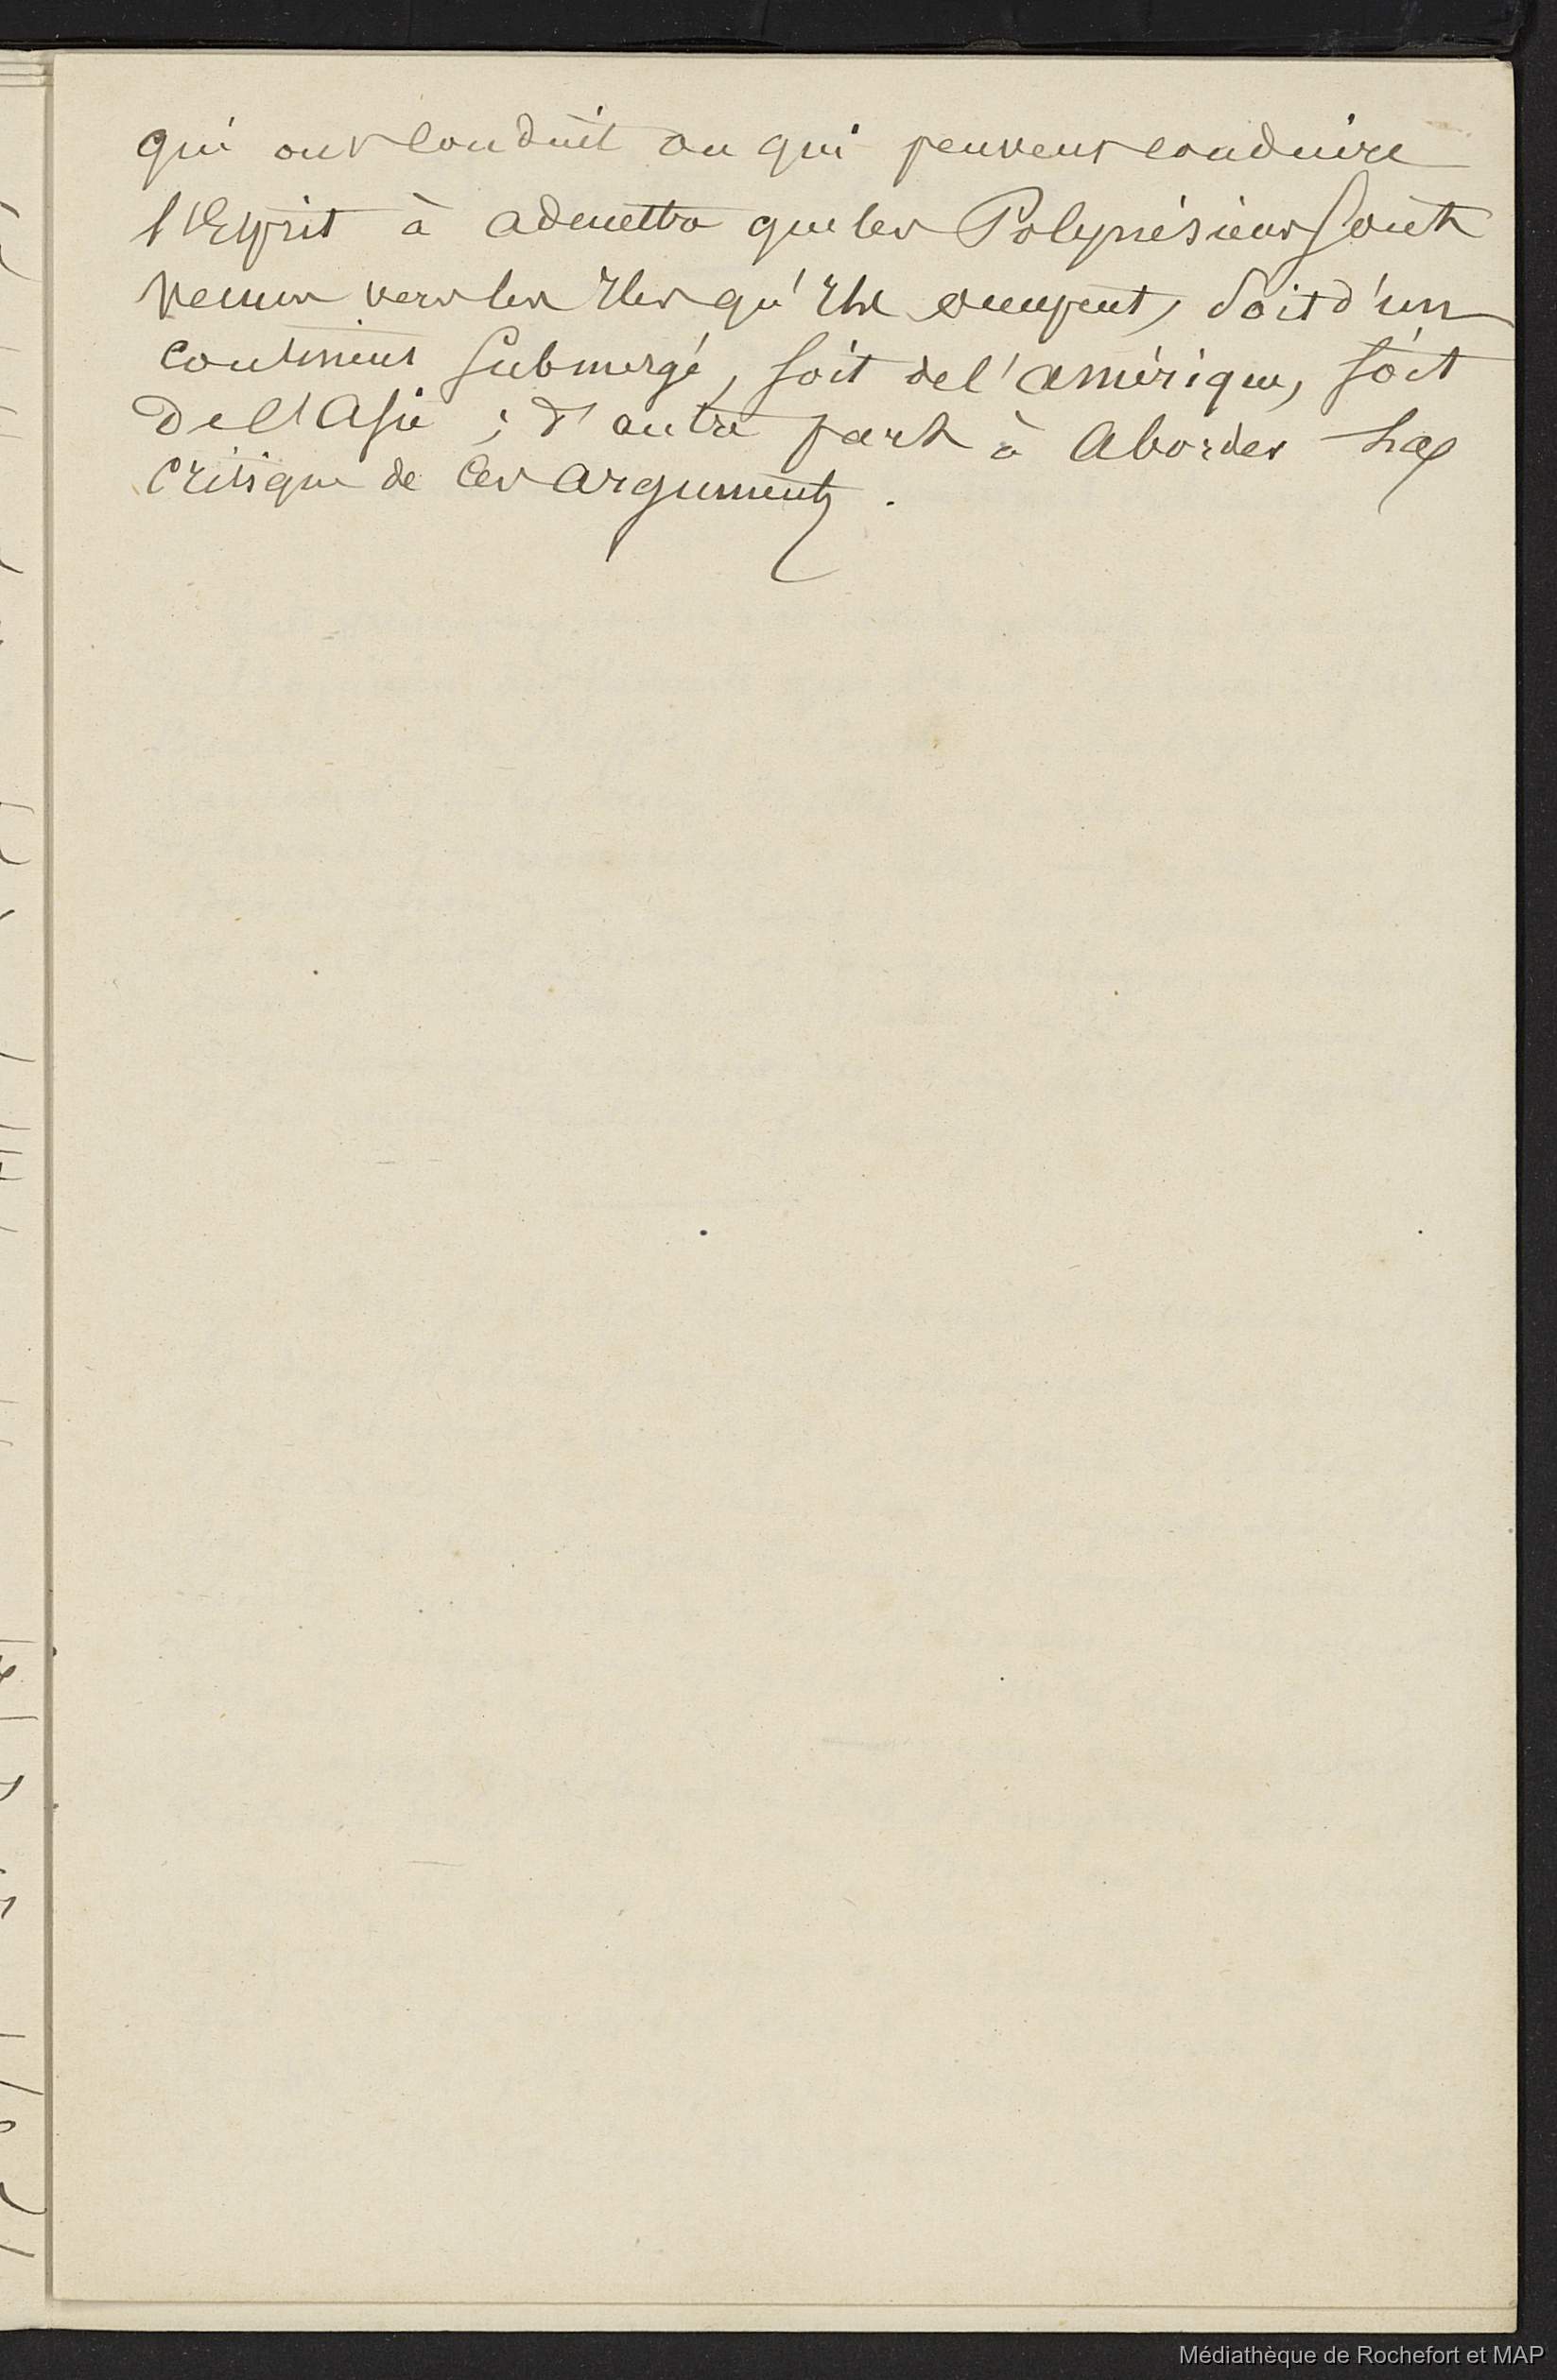 qui ont conduit ou qui peuvent conduire
l'Esprit à admettre que les Polynésiens sont
venus vers les Iles qu'Ils occupent, soit d'un
continent submergé, soit de l'amérique, soit
De l'Asie ; d'autre part à Aborder la
critique de Ces arguments .
Médiathèque de Rochefort et MAP